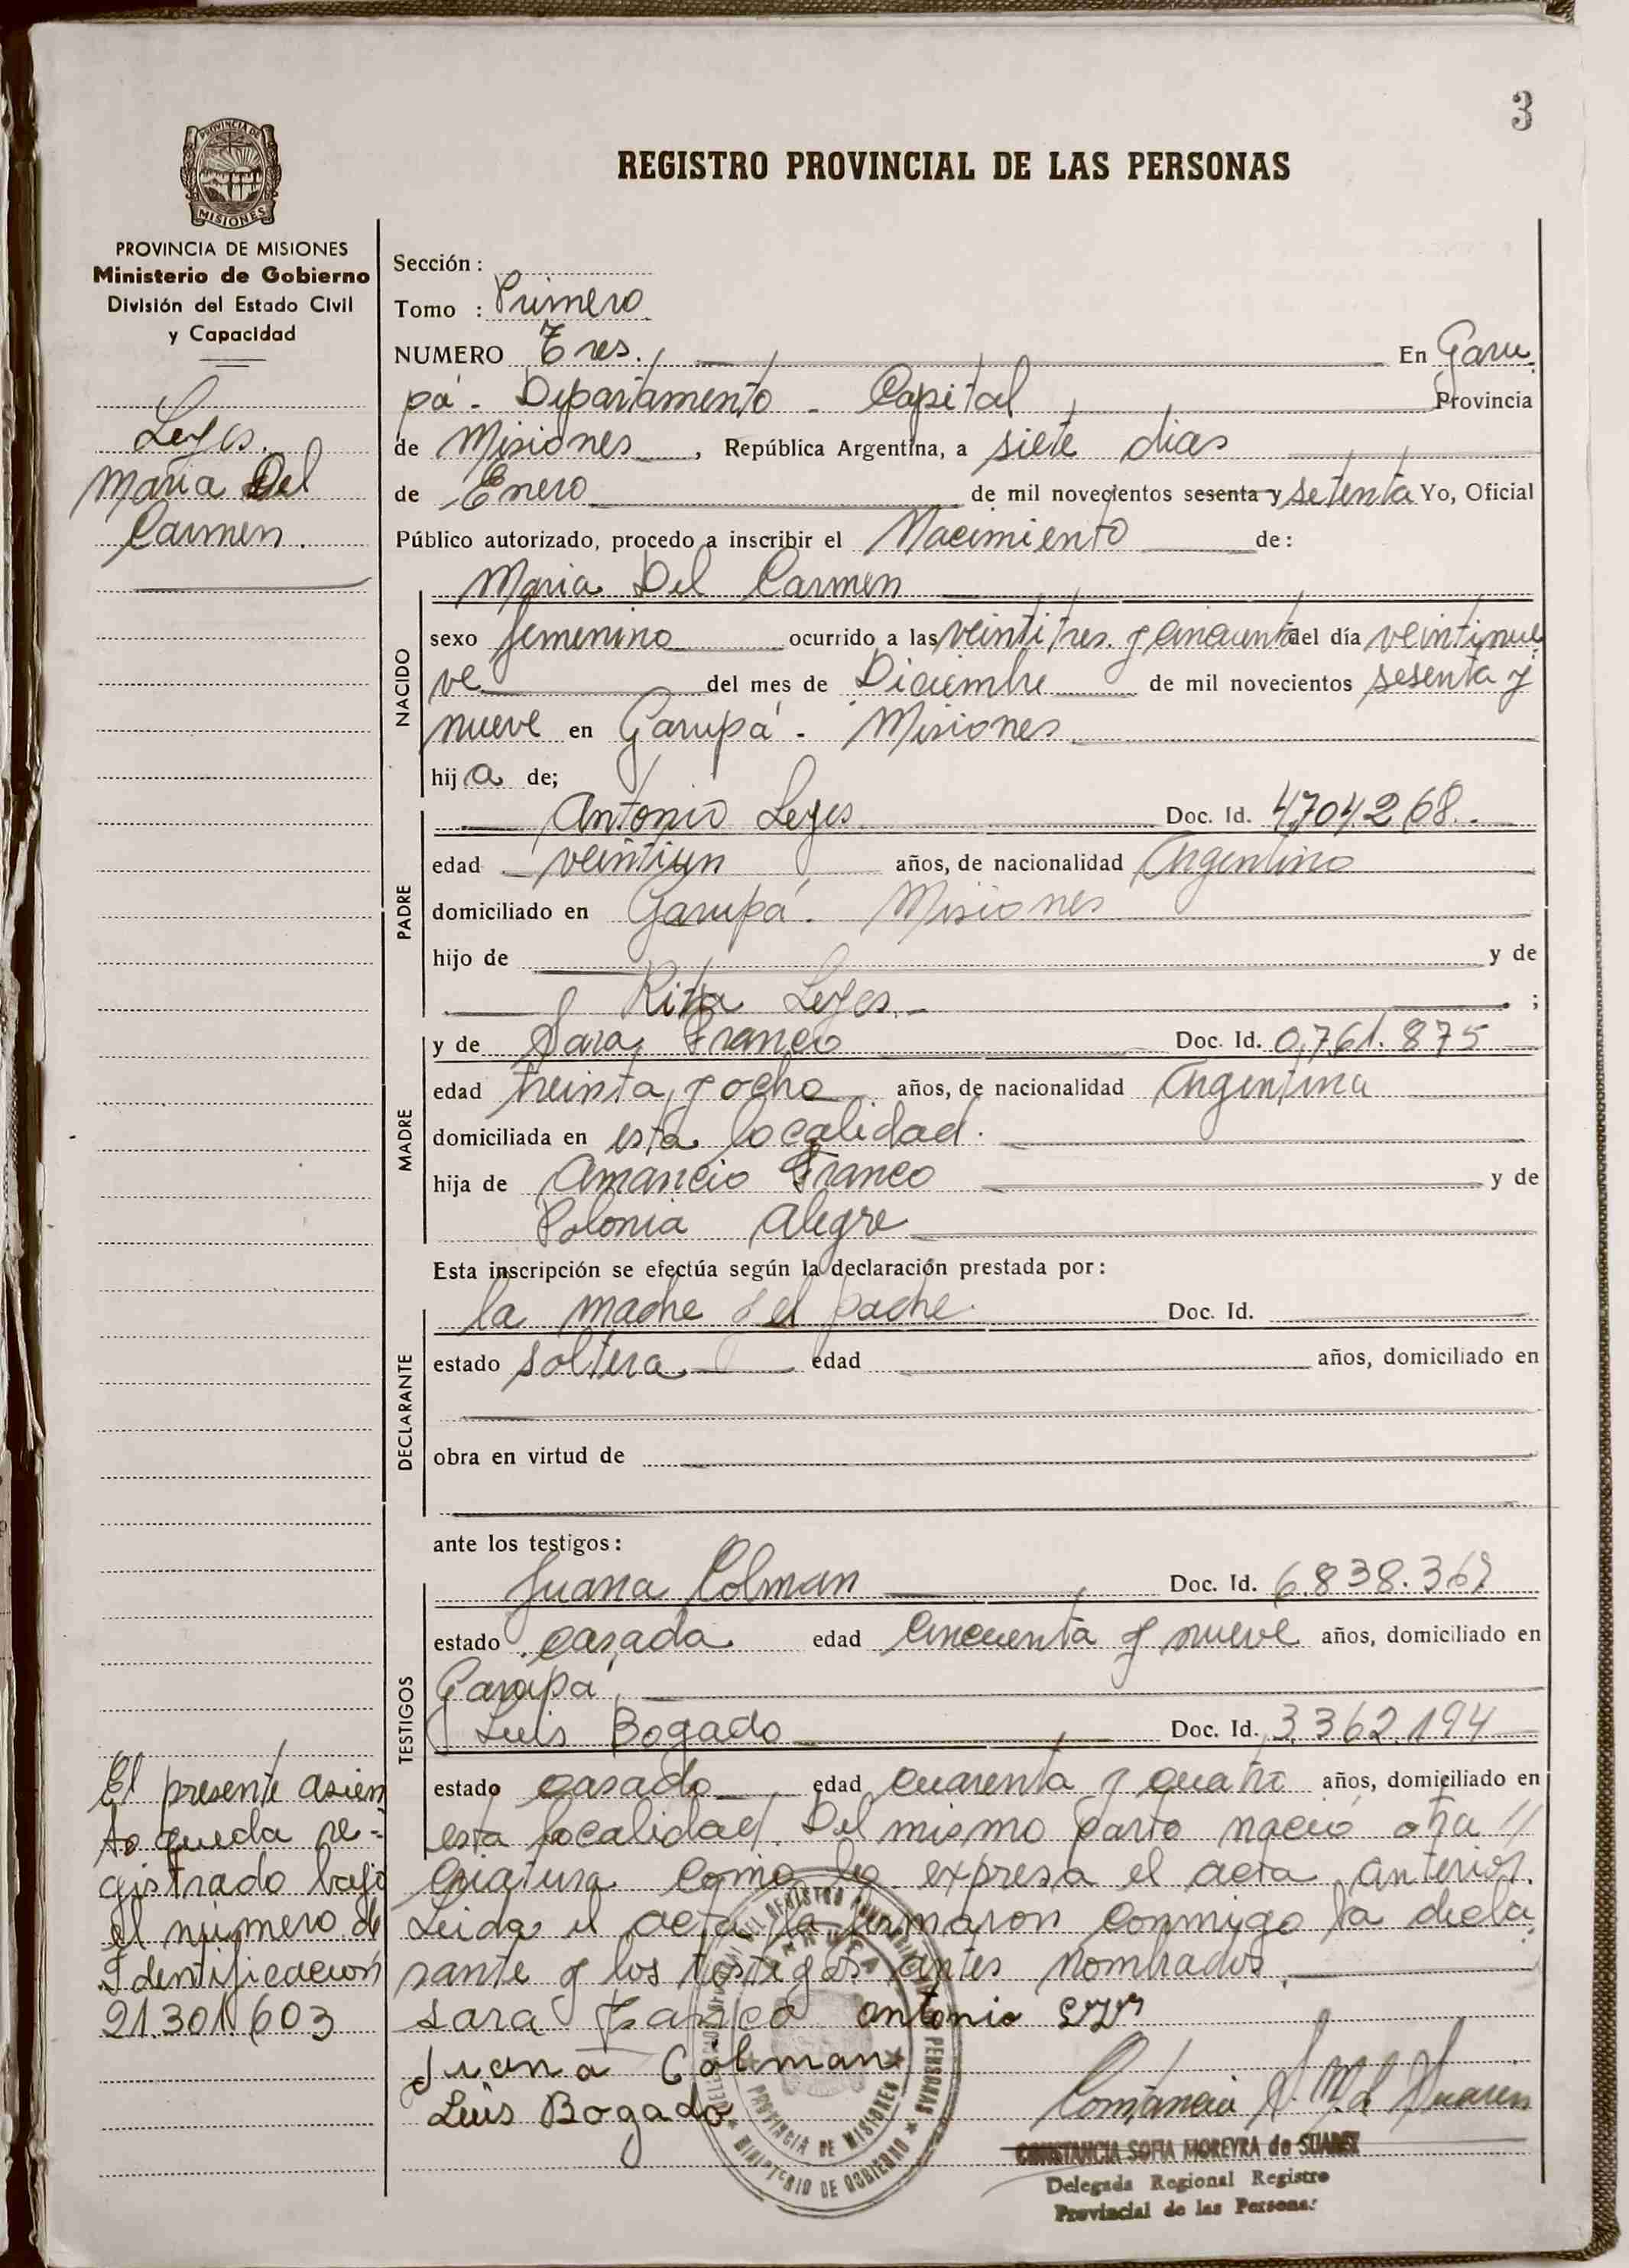 3
PROVINCIA DE
MISIONES
REGISTRO PROVINCIAL DE LAS PERSONAS
PROVINCIA DE MISIONES
Ministerio de Gobierno
División del Estado Civil
y Capacidad
Leyes.
Maria Del
Carmen.
Sección :
Tomo : Primero
NUMERO Tres. En Garu
pá - Departamento - Capital Provincia
de Misiones , República Argentina, a siete dias
de Enero de mil novecientos sesenta y setenta Yo, Oficial
Público autorizado, procedo a inscribir el Nacimiento de:
Maria Del Carmen
NACIDO
sexo femenino ocurrido a las veintitres y cincuenta del día veintinue
ve del mes de Diciembre de mil novecientos sesenta y
nueve en Garupá - Misiones
hija de;
PADRE
Antonio Leyes Doc. Id. 4.704.268.
edad veintiun años, de nacionalidad Argentino
domiciliado en Garupá. Misiones
hijo de y de
Rita Leyes. ;
MADRE
y de Sara Franco Doc. Id. 0.761.875
edad treinta y ocho años, de nacionalidad Argentina
domiciliada en esta localidad.
hija de Amancio Franco y de
Polonia Alegre
Esta inscripción se efectúa según la declaración prestada por:
DECLARANTE
la madre y el padre. Doc. Id.
estado soltera edad años, domiciliado en
obra en virtud de
ante los testigos:
TESTIGOS
Juana Colman Doc. Id. 6.838.367
estado casada edad cincuenta y nueve años, domiciliado en
Garupá
Luis Bogado Doc. Id. 3.362.194
estado casado edad cuarenta y cuatro años, domiciliado en
esta localidad. Del mismo parto nació otra //
criatura como lo expresa el acta anterior.
Leida el acta la firmaron conmigo la decla
rante y los testigos antes nombrados.
Sara Franco Antonio
Juana Colman
Luis Bogado
El presente asien
to queda re-
gistrado bajo
el número de
Identificacion
21.301.603
PROVINCIA DE MISIONES
MINISTERIO DE GOBIERNO
Constancia S. M. de Suarez
CONSTANCIA SOFIA MOREYRA de SUAREZ
Delegada Regional Registro
Provincial de las Personas